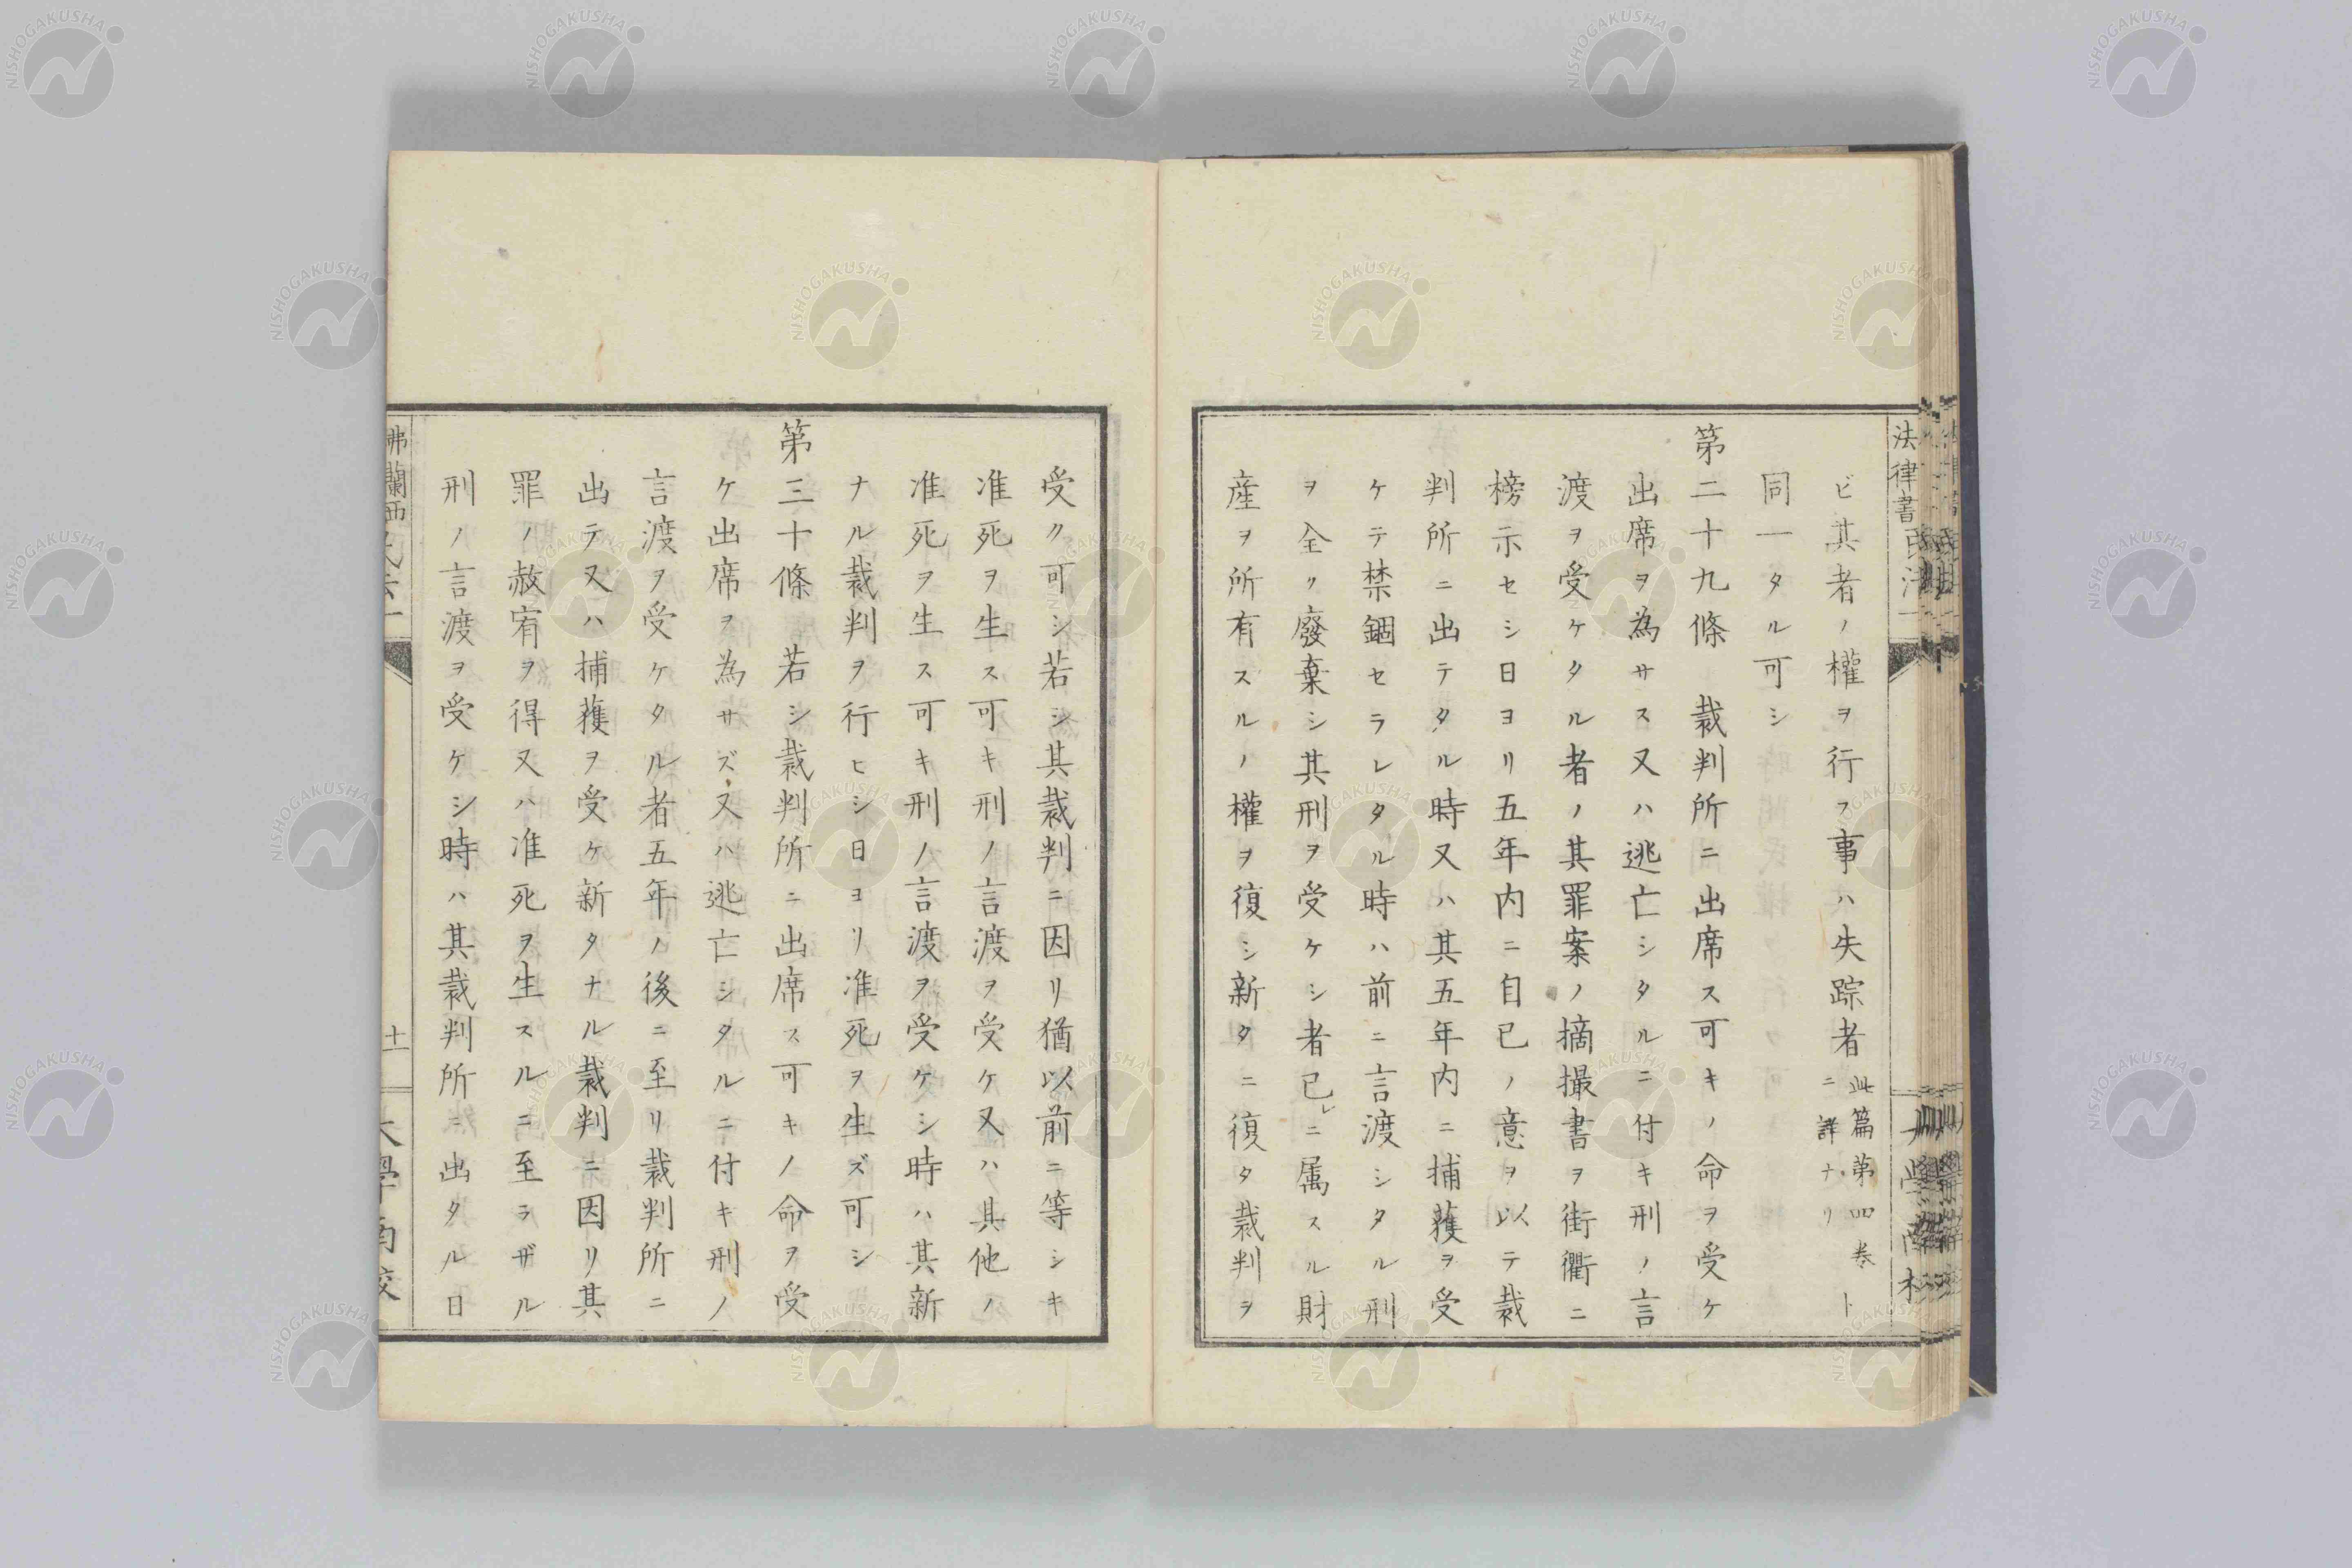 法律書
ビ其者ノ權ヲ行フ事ハ失踪者此篇第四卷ニ詳ナリト
同一タル可シ
第二十九條 裁判所ニ出席ス可キノ命ヲ受ケ
出席ヲ為サス又ハ逃亡シタルニ付キ刑ノ言
渡ヲ受ケタル者ノ其罪案ノ摘撮書ヲ街衢ニ
榜示セシ日ヨリ五年内ニ自已ノ意ヲ以テ裁
判所ニ出テタル時又ハ其五年内ニ捕獲ヲ受
ケテ禁錮セラレタル時ハ前ニ言渡シタル刑
ヲ全ク廢棄シ其刑ヲ受ケシ者已レニ属スル財
産ヲ所有スルノ權ヲ復シ新タニ復タ裁判ヲ
受ク可シ若シ其裁判ニ因リ猶以前ニ等シキ
准死ヲ生ス可キ刑ノ言渡ヲ受ケ又ハ其他ノ
准死ヲ生ス可キ刑ノ言渡ヲ受ケシ時ハ其新
ナル裁判ヲ行ヒシ日ヨリ准死ヲ生ズ可シ
第三十條 若シ裁判所ニ出席ス可キノ命ヲ受
ケ出席ヲ為サズ又ハ逃亡シタルニ付キ刑ノ
言渡ヲ受ケタル者五年ノ後ニ至リ裁判所ニ
出テ又ハ捕獲ヲ受ケ新タナル裁判ニ因リ其
罪ノ赦宥ヲ得又ハ准死ヲ生スルニ至ラザル
刑ノ言渡ヲ受ケシ時ハ其裁判所ニ出タル日
佛蘭西 十一 大學南校
NISHOGAKUSHA